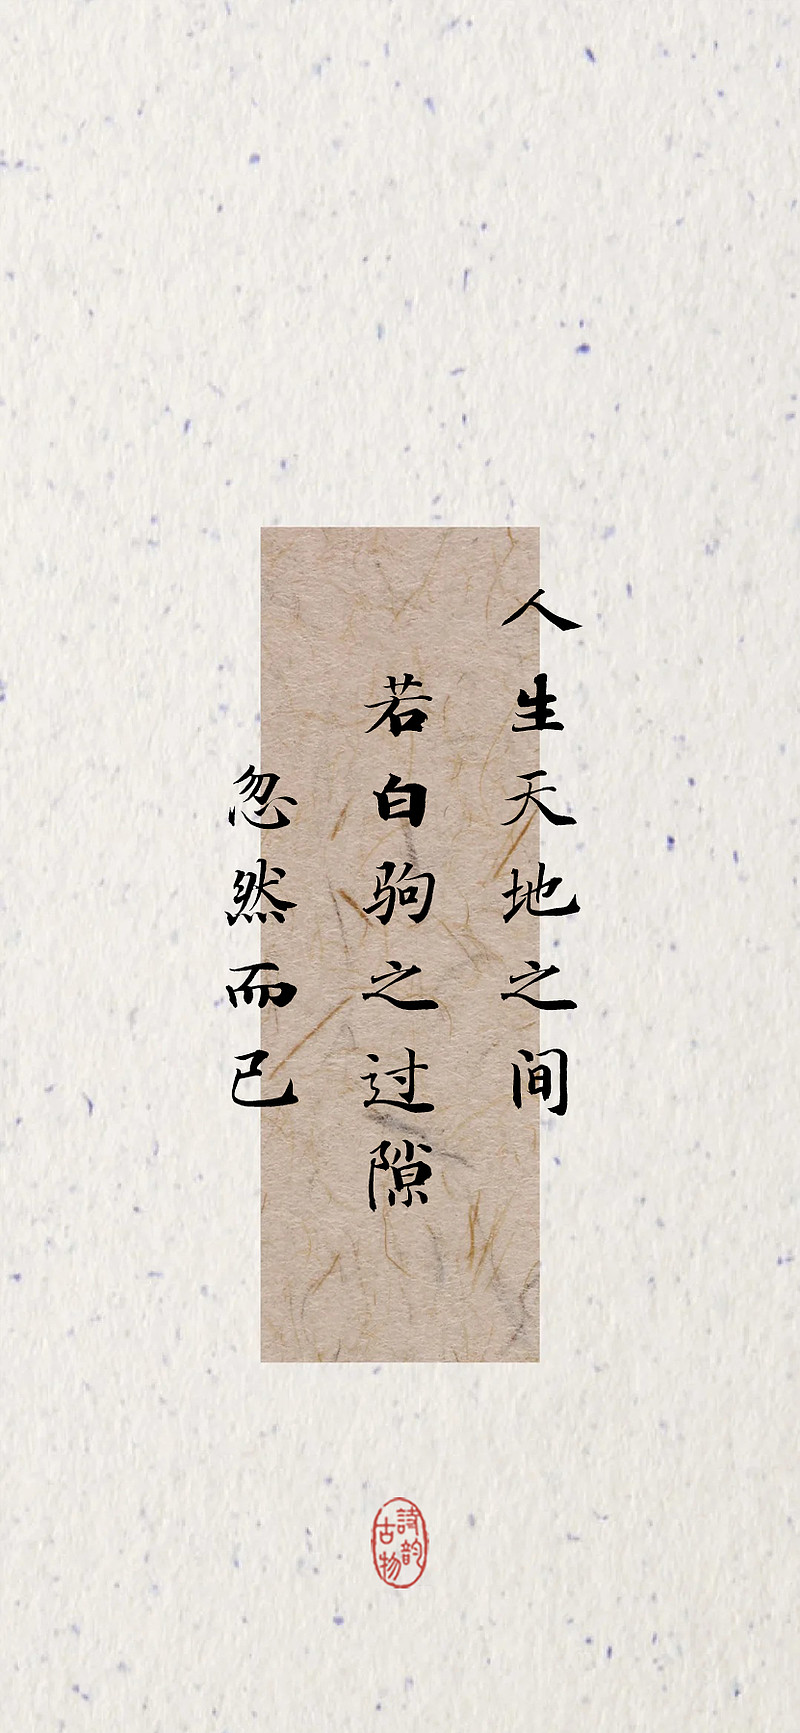 人生天地之间
若白驹之过隙
忽然而已
詩韵
古物